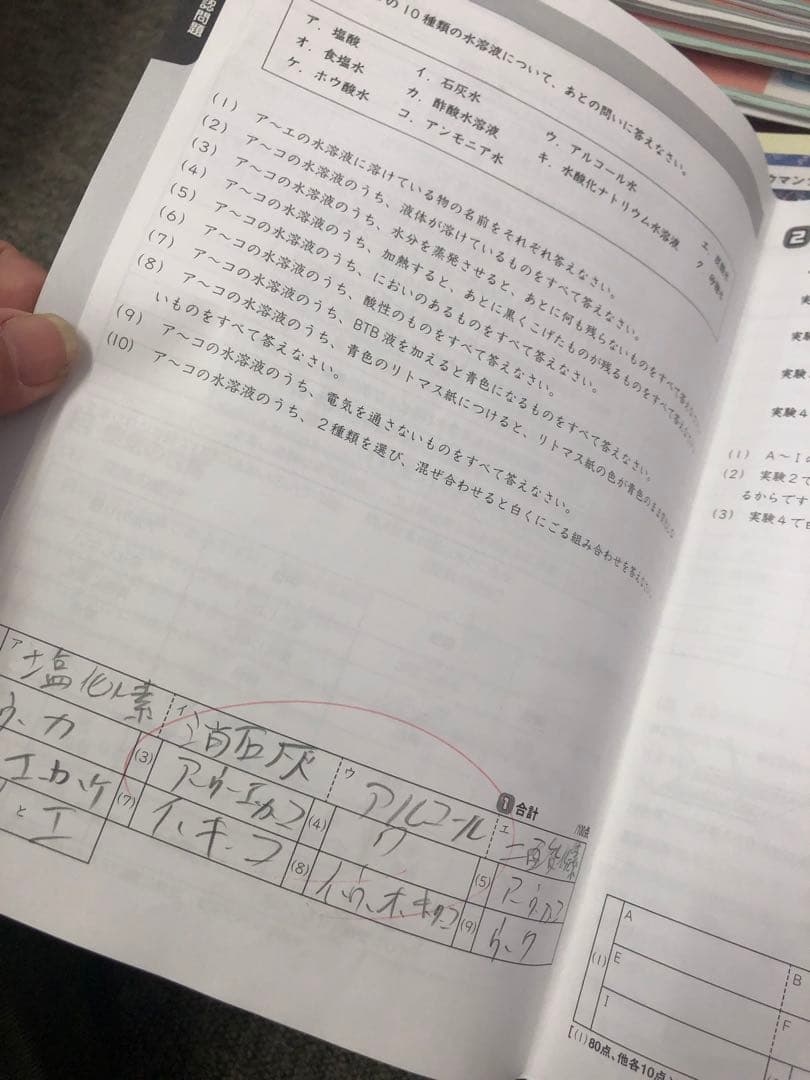 認問題
の10種類の水溶液について、あとの問いに答えなさい。
ア．塩酸
イ．石灰水
ウ．アルコール水
エ．炭酸水
オ．食塩水
カ．酢酸水溶液
キ．水酸化ナトリウム水溶液
ク．砂糖水
ケ．ホウ酸水
コ．アンモニア水
(1) ア～エの水溶液に溶けている物の名前をそれぞれ答えなさい。
(2) ア～コの水溶液のうち、液体が溶けているものをすべて答えなさい。
(3) ア～コの水溶液のうち、水分を蒸発させると、あとに何も残らないものをすべて答えなさい。
(4) ア～コの水溶液のうち、加熱すると、あとに黒くこげたものが残るものをすべて答えなさい。
(5) ア～コの水溶液のうち、においのあるものをすべて答えなさい。
(6) ア～コの水溶液のうち、酸性のものをすべて答えなさい。
(7) ア～コの水溶液のうち、BTB液を加えると青色になるものをすべて答えなさい。
(8) ア～コの水溶液のうち、青色のリトマス紙につけると、リトマス紙の色が青色のまま変化しな
いものをすべて答えなさい。
(9) ア～コの水溶液のうち、電気を通さないものをすべて答えなさい。
(10) ア～コの水溶液のうち、2種類を選び、混ぜ合わせると白くにごる組み合わせを答えなさい。
1 合計 /100点
ア 塩化水素
イ 消石灰
ウ アルコール
エ
ウ、カ
(3) ア、ウ、エ、カ、コ
(4) ク
(5) ア、ウ、カ、コ
エ、カ、ケ
(7) イ、キ、コ
(8) イ、ウ、オ、キ、ク、コ
(9) ウ、ク
と エ
ウマン
2
実
実験
実験
実験4
(1) A～Iの
(2) 実験2で
るからです
(3) 実験4で白
(1)
A
B
E
F
I
[(1)80点、他各10点